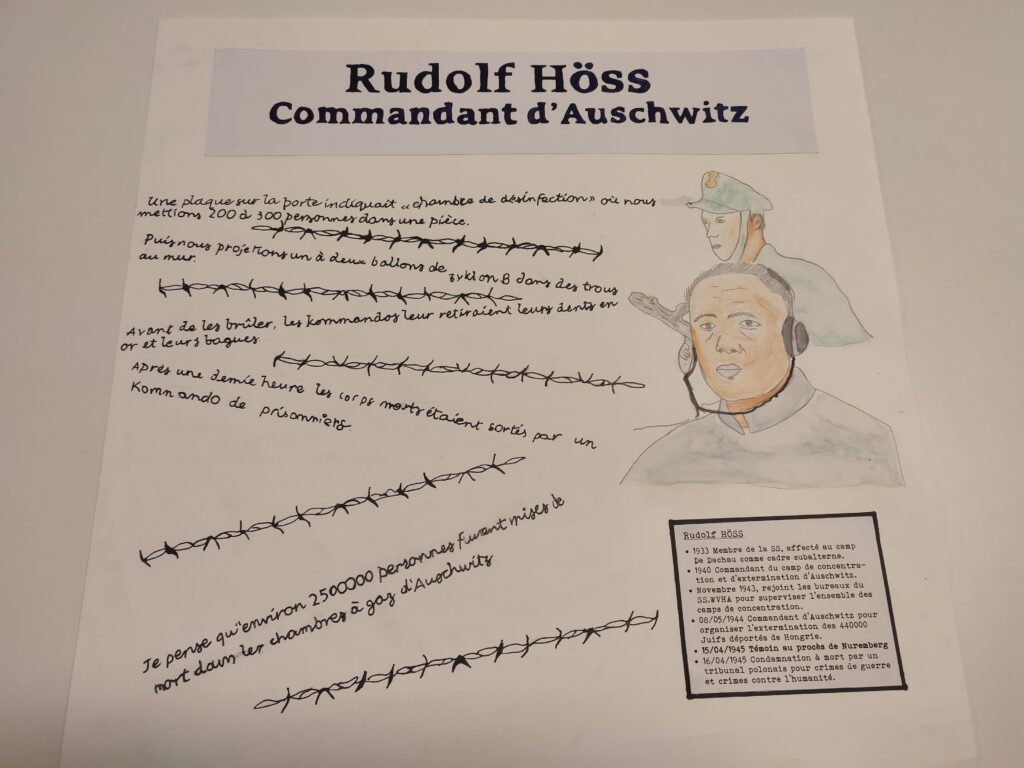 Rudolf Höss
Commandant d'Auschwitz
Une plaque sur la porte indiquait ,,chambre de désinfection" où nous
mettions 200 à 300 personnes dans une pièce.
Puis nous projetions un à deux ballons de zyklon B dans des trous
au mur.
Avant de les brûler, les kommandos leur retiraient leurs dents en
or et leurs bagues.
Après une demie heure les corps morts étaient sortés par un
Kommando de prisonniers.
Je pense qu"environ 2500000 personnes furent mises de
mort dans les chambres à gaz d'Auschwitz
Rudolf HÖSS
• 1933 Membre de la SS, affecté au camp
De Dachau comme cadre subalterne.
• 1940 Commandant du camp de concentra-
tion et d'extermination d'Auschwitz.
• Novembre 1943, rejoint les bureaux du
SS.WVHA pour superviser l'ensemble des
camps de concentration.
• 08/05/1944 Commandant d'Auschwitz pour
organiser l'extermination des 440000
Juifs déportés de Hongrie.
• 15/04/1945 Témoin au procès de Nuremberg
• 16/04/1945 Condamnation à mort par un
tribunal polonais pour crimes de guerre
et crimes contre l'humanité.